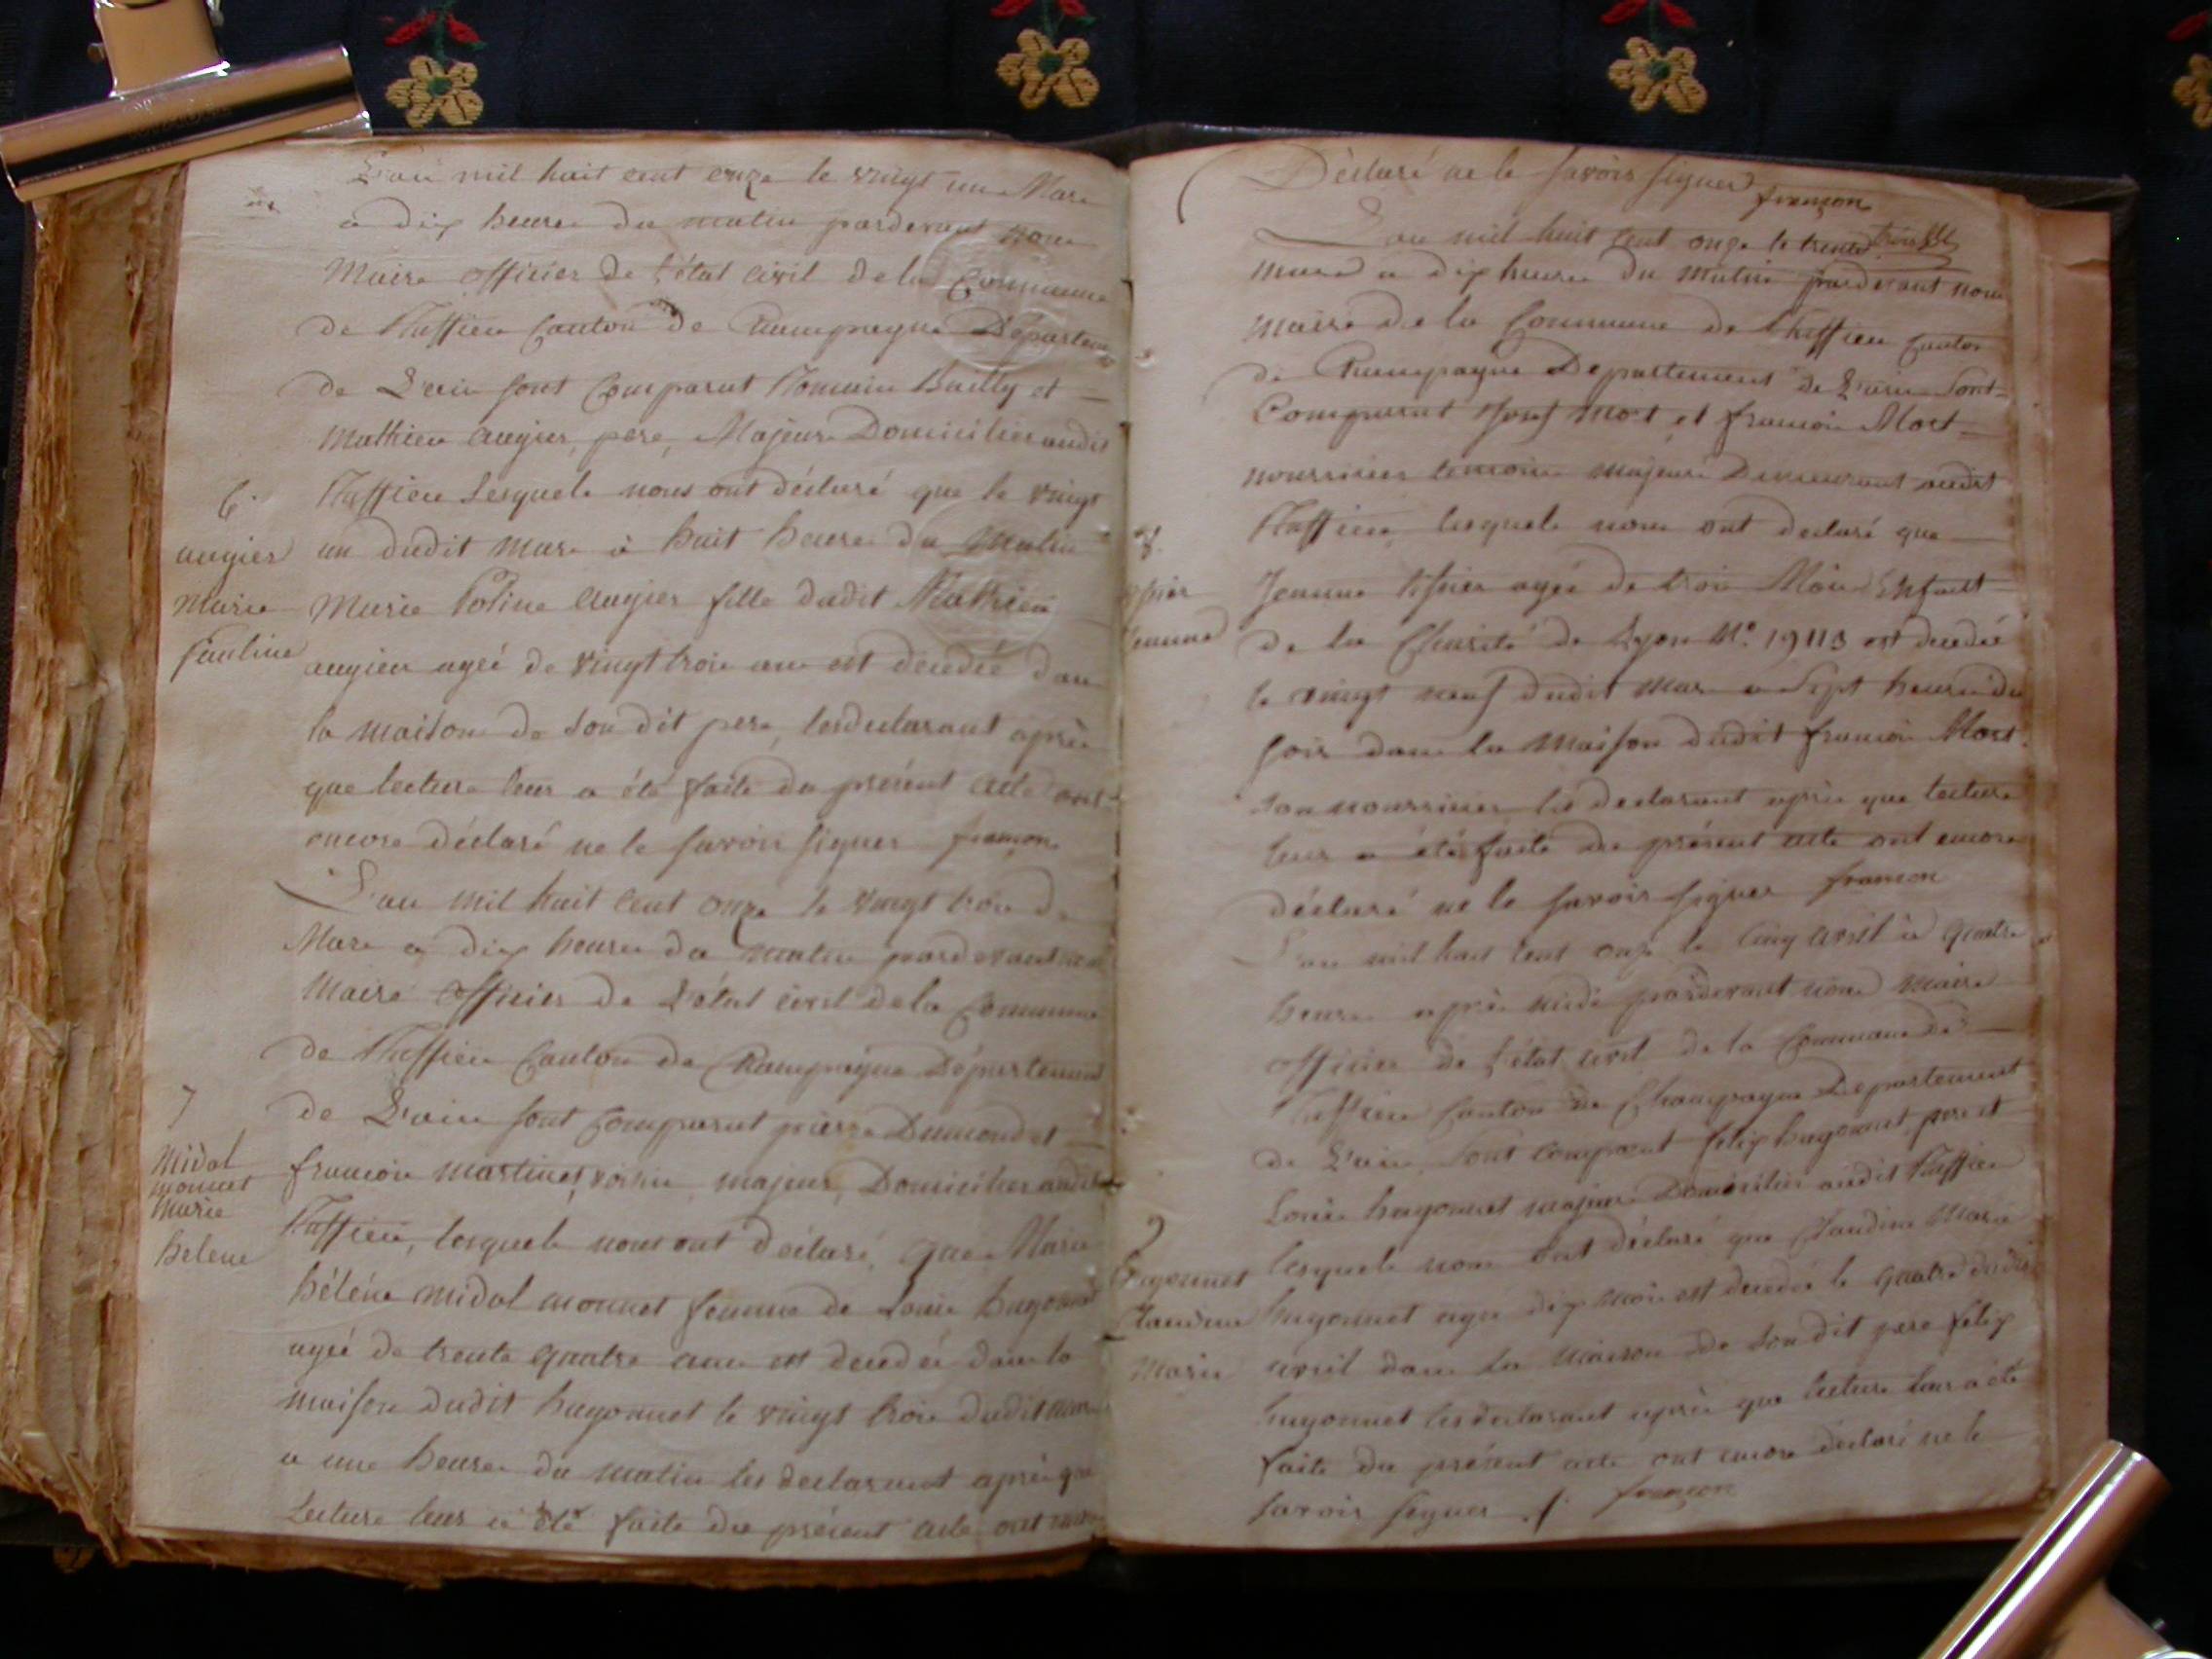 L'an mil huit cent onze le vingt un Mars
a dix heures du matin pardevant nous
Maire officier de l'état civil de la Commune
de Ruffieu Canton de Champagne Départem
de L'ain sont comparut Romain Bailly et
Mathieu augier, pere, Majeurs Domiciliés audit
Ruffieu Lesquels nous ont déclaré que le vingt
6.
augier
Marie
pauline
un dudit mars à huit heures du Matin
Marie Poline augier fille dudit Mathieu
augier agée de vingt trois ans est décedée dans
la maison de son dit pere, les declarant après
que lecture leur a été faite du présent acte ont
encore déclaré ne le savoir signer françon
L'an mil huit cent onze le vingt trois de
Mars a dix heures du matin pardevant nous
Maire officier de L'état civil de la Commune
de Ruffieu Canton de Champagne Département
7
Midol
monnet
Marie
helene
de L'ain sont comparut pierre Dumond et
françois martinet, voisin, majeurs, Domiciliés audit
Ruffieu, lesquels nous ont déclaré, que Marie
héléne midol monnet femme de Louis hugonnet
agée de trente quatre ans est decedée dans la
maison dudit hugonnet le vingt trois dudit mars
a une heures du matin les declarant après que
Lecture leur a été faite du présent acte ont encore
Déclaré ne le savoir signer
françon
L'an mil huit cent onze le trente
mars a dix heures du matin pardevant nous
maire de la Commune de Ruffieu Canton
de Champagne Departement de L'ain sont
Comparut Josef Mort et françois Mort
nourricier temoins majeurs Demeurant audit
Ruffieu, lesquels nous ont declaré que
8.
Jeanne
Jeanne tissier agée de trois Mois Enfant
de la Charité de Lyon N.º 19113 est decedée
le vingt neuf dudit mars a sept heures du
soir dans la Maison dudit françois Mort
son nourricier les declarant après que lecture
leur a été faite du présent acte ont encore
déclaré ne le savoir signer françon
L'an mil huit cent onze le cinq avril à quatre
heures après midi pardevant nous maire
officier de l'état civil de la Commune de
Ruffieu Canton de Champagne Departement
de L'ain, sont comparut felix hugonnet, pere et
Louis hugonnet majeurs Domiciliés audit Ruffieu
9
hugonnet
Claudine
Marie
lesquels nous ont déclaré que Claudine Marie
hugonnet agée dix mois est decedée le quatre dudit
avril dans la maison de son dit pere felix
hugonnet les declarant après que lecture leur a été
faite du présent acte ont encore déclaré ne le
savoir signer ./. françon